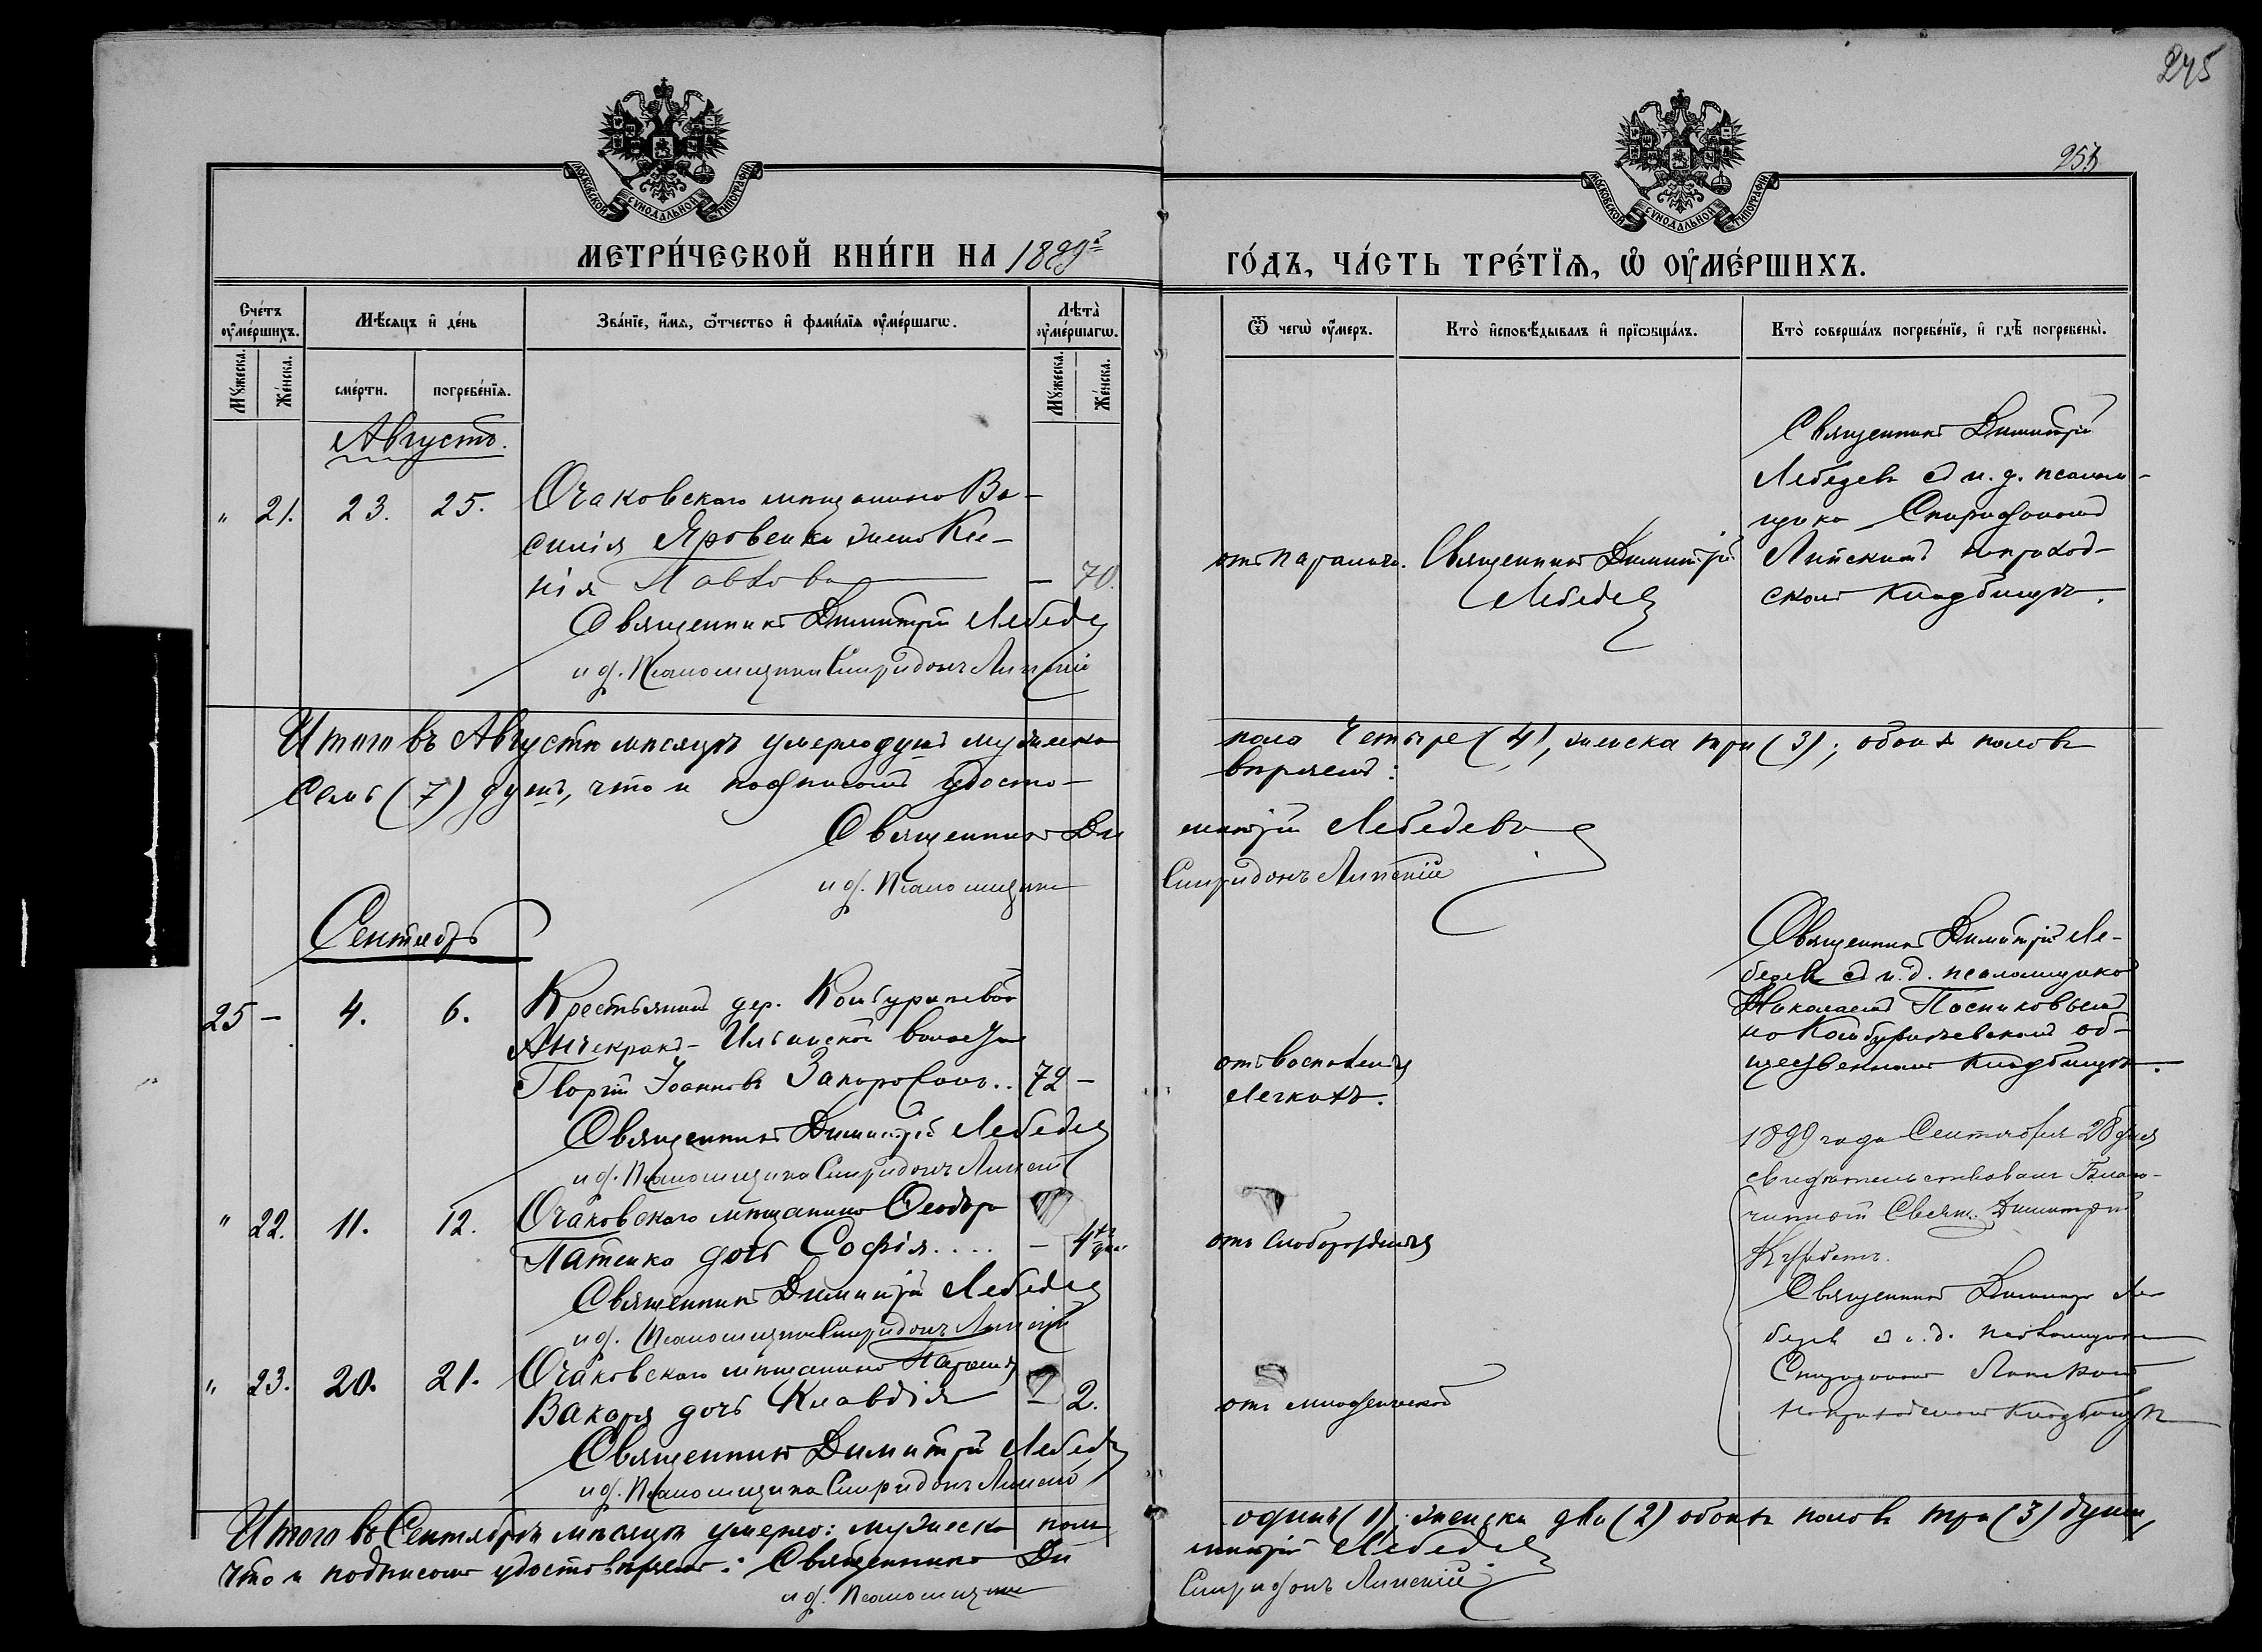 245
253
МОСКОВСКОЙ СѴНОДАЛЬНОЙ ТИПОГРАФІИ
МОСКОВСКОЙ СѴНОДАЛЬНОЙ ТИПОГРАФІИ
МЕТРИ́ЧЕСКОЙ КНИ́ГИ НА 1899
ГО́ДЪ, ЧА́СТЬ ТРЕ́ТЇѦ, Ѽ ОУ҆МЕ́РШИХЪ.
Сче́тъ оу҆ме́ршихъ.
Мꙋ́жеска.
Же́нска.
Мѣ́сѧцъ и҆ де́нь
сме́рти.
погребе́нїѧ.
Зва́нїе, и҆́мѧ, ѻ҆́тчество и҆ фами́лїѧ оу҆ме́ршагѡ.
Лѣ́та̀ оу҆ме́ршагѡ.
Мꙋ́жеска.
Же́нска.
Ѿ чегѡ̀ оу҆́меръ.
Кто̀ и҆сповѣ́дывалъ и҆ прїѡбща́лъ.
Кто̀ соверша́лъ погребе́нїе, и҆ гдѣ̀ погребены̀.
Августъ.
" 21. 23. 25.
Очаковскаго мѣщанина Ва-
силія Яровенко жена Ксе-
нія Павлова — 70.
Священникъ Димитрій Лебедев
и д. Псаломщика Спиридонъ Липскій
отъ паралича.
Священникъ Димитрій
Лебедев
Священникъ Димитрій
Лебедевъ съ и. д. псалом-
щика Спиридономъ
Липскимъ на приход-
скомъ кладбищѣ.
Итого въ Августѣ мѣсяцѣ умерло душъ мужеска
пола четыре (4), женска три (3); обоихъ половъ
семь (7) душъ, что и подписомъ удосто-
вѣряемъ:
Священникъ Ди
митрій Лебедевъ
и д. Псаломщика
Спиридонъ Липскій
Сентябрь
25 — 4. 6.
Крестьянинъ дер.
Анчекракъ-Ильинской волости
Георгій Іоанновъ 72 —
Священникъ Димитрій Лебедев
и д. Псаломщика Спиридонъ Липскій
отъ воспаленія
легкихъ.
Священникъ Димитрій Ле-
бедевъ съ и. д. псаломщика
Николаемъ
на об-
щественномъ кладбищѣ.
" 22. 11. 12.
Очаковскаго мѣщанина Ѳеодора
Латенко дочь Софія.... — 4 дн.
Священникъ Димитрій Лебедев
и д. Псаломщика Спиридонъ Липскій
отъ слаборожденія
1899 года Сентября 28 дня
свидѣтельствовалъ Благо-
чинный Свящ. Димитрій
" 23. 20. 21.
Очаковскаго мѣщанина
Вакаря дочь Клавдія — 2.
Священникъ Димитрій Лебедев
и д. Псаломщика Спиридонъ Липскій
отъ младенческой
Священникъ Димитрій Ле-
бедев съ и. д. псаломщика
Спиридономъ Липскимъ
на приходскомъ кладбищѣ
Итого въ Сентябрѣ мѣсяцѣ умерло: мужеска пола
одинъ (1), женска два (2) обоихъ половъ три (3) души,
что и подписомъ удостовѣряемъ: Священникъ Ди
митрій Лебедев
и д. Псаломщика
Спиридонъ Липскій